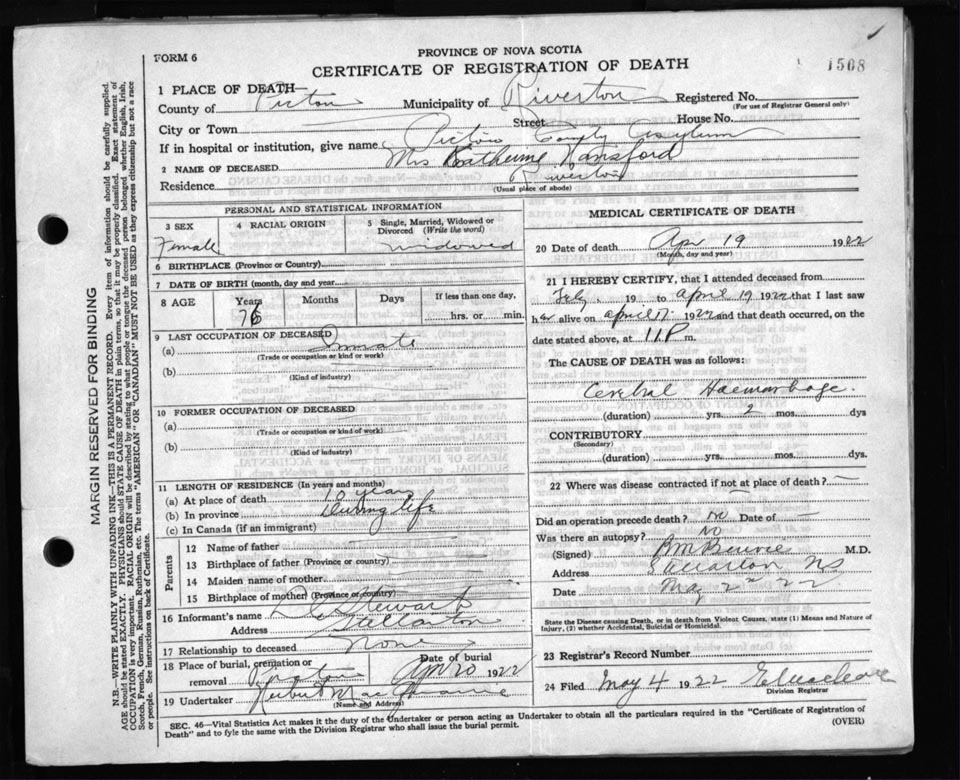 FORM 6
PROVINCE OF NOVA SCOTIA
CERTIFICATE OF REGISTRATION OF DEATH
1508
1 PLACE OF DEATH—
County of Pictou Municipality of Riverton Registered No.
(For use of Registrar General only)
City or Town Street House No.
If in hospital or institution, give name Pictou County Asylum
2 NAME OF DECEASED Mrs Katherine Vansford
Residence Riverton
(Usual place of abode)
PERSONAL AND STATISTICAL INFORMATION
3 SEX
Female
4 RACIAL ORIGIN
5 Single, Married, Widowed or Divorced (Write the word)
widowed
6 BIRTHPLACE (Province or Country)
7 DATE OF BIRTH (month, day and year)
8 AGE Years Months Days If less than one day,
76 hrs. or min.
9 LAST OCCUPATION OF DECEASED
(a) Inmate
(Trade or occupation or kind or work)
(b)
(Kind of industry)
10 FORMER OCCUPATION OF DECEASED
(a)
(Trade or occupation or kind of work)
(b)
(Kind of industry)
11 LENGTH OF RESIDENCE (In years and months)
(a) At place of death 10 years
(b) In province During life
(c) In Canada (if an immigrant)
Parents
12 Name of father
13 Birthplace of father (Province or country)
14 Maiden name of mother
15 Birthplace of mother (Province or country)
16 Informant's name Stewart
Address Stellarton
17 Relationship to deceased None
18 Place of burial, cremation or removal Date of burial
Apr 20 1922
19 Undertaker Herbert
(Name and Address)
MEDICAL CERTIFICATE OF DEATH
20 Date of death Apr 19 1922
(Month, day and year)
21 I HEREBY CERTIFY, that I attended deceased from
July, 19 to April 19 1922 that I last saw
her alive on April 17 1922 and that death occurred, on
date stated above, at 11 P m.
The CAUSE OF DEATH was as follows:
Cerebral Haemorrhage.
(duration) yrs. 2 mos. dys
CONTRIBUTORY
(Secondary)
(duration) yrs. mos. dys.
22 Where was disease contracted if not at place of death? —
Did an operation precede death? No Date of
Was there an autopsy? No
(Signed) M.D.
Address Stellarton NS
Date May 2nd 22
State the Disease causing Death, or in death from Violent Causes, state (1) Means and Nature of
Injury, (2) whether Accidental, Suicidal or Homicidal.
23 Registrar's Record Number
24 Filed May 4 1922
Division Registrar
SEC. 46—Vital Statistics Act makes it the duty of the Undertaker or person acting as Undertaker to obtain all the particulars required in the "Certificate of Registration of
Death" and to fyle the same with the Division Registrar who shall issue the burial permit.
(OVER)
MARGIN RESERVED FOR BINDING
N.B.—WRITE PLAINLY WITH UNFADING INK—THIS IS A PERMANENT RECORD. Every item of information should be carefully supplied.
AGE should be stated EXACTLY. PHYSICIANS should STATE CAUSE OF DEATH in plain terms, so that it may be properly classified. Exact statement of
OCCUPATION is very important. RACIAL ORIGIN will be described by stating to what people or tongue the deceased person belonged whether English, Irish,
Scotch, French, German, Russian, Ruthenian, etc. The terms "AMERICAN" or "CANADIAN" MUST NOT BE USED as they express citizenship but not a race
or people. See instructions on back of Certificate.